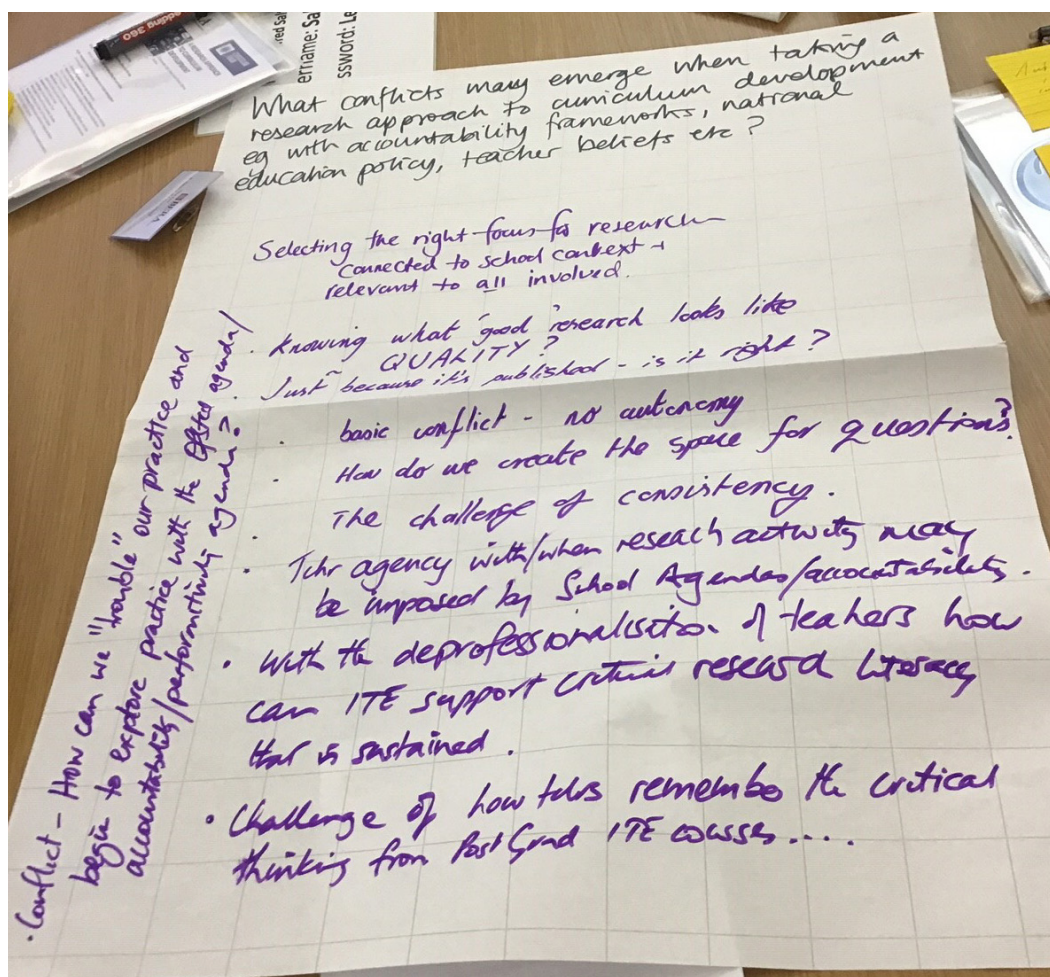 What conflicts may emerge when taking a
research approach to curriculum development
eg with accountability frameworks, national
education policy, teacher beliefs etc?
Selecting the right focus for research
connected to school context +
relevant to all involved.
. Knowing what 'good' research looks like
QUALITY?
. Just because it's published - is it right?
. basic conflict - no autonomy
. How do we create the space for questions?
. The challenge of consistency.
. Tchr agency with/when reseach activity may
be imposed by School Agendas/accountability.
. With the deprofessionalisation of teachers how
can ITE support critical research literacy
that is sustained.
. Challenge of how tchrs remember the critical
thinking from Post Grad ITE courses....
. Conflict - How can we "trouble" our practice and
begin to explore practice with the Ofsted agenda/
accountability/performitivity agenda?
ername: Sa
ssword: Le
BERA